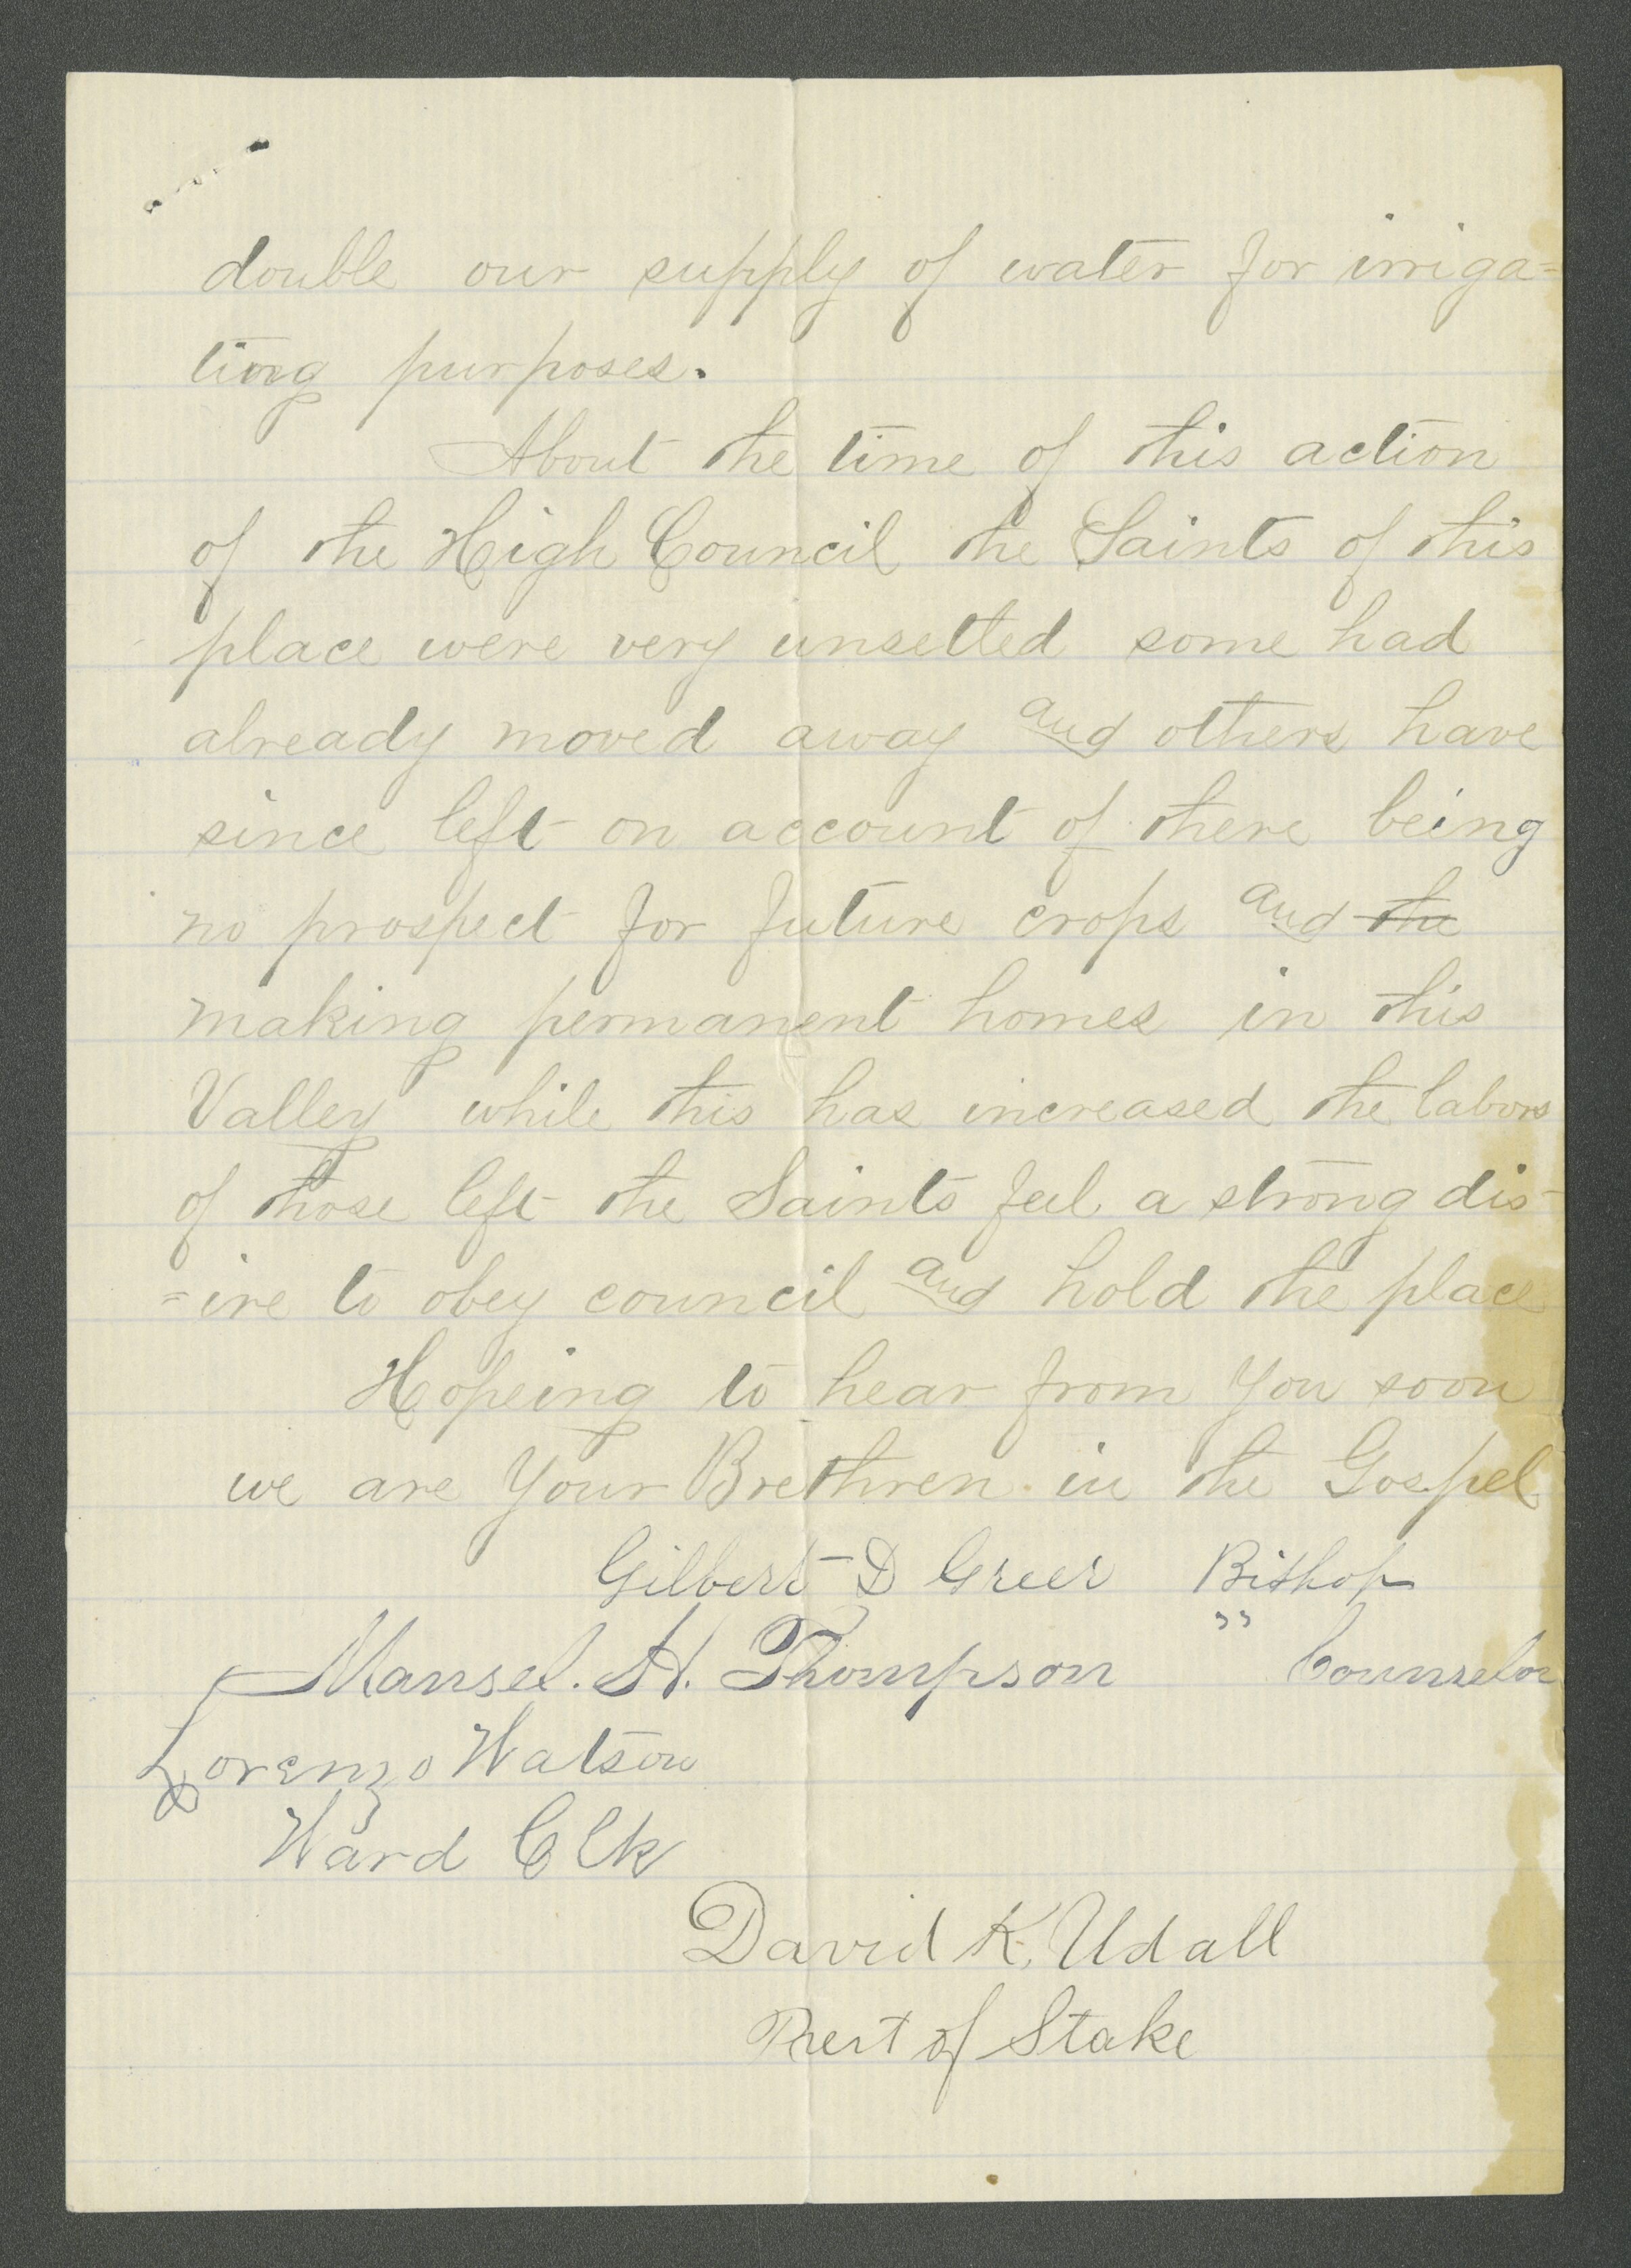 double our supply of water for irriga=
ting purposes.
About the time of this action
of the High Council the Saints of this
place were very unsetted some had
already moved away and others have
since left on account of there being
no prospect for future crops and the
making permanent homes in this
Valley while this has increased the labors
of those left the Saints feel a strong dis-
=ire to obey council and hold the place
Hopeing to hear from you soon
we are Your Brethren in the Gospel
Gilbert D Greer Bishop
Mansel. H. Thompson " Counselor
Lorenzo Watson
Ward Clk
David K. Udall
Prest of Stake